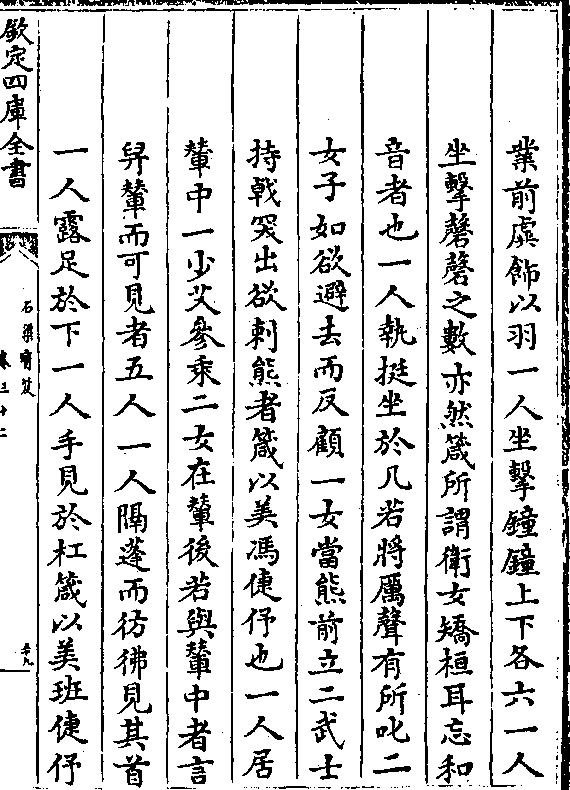 業前虡飾以羽一人坐擊鐘鐘上下各六一人
坐擊磬磬之數亦然箴所謂衛女矯桓耳忘和
音者也一人執挺坐於几若將厲聲有所叱二
女子如欲避去而反顧一女當熊前立二武士
持戟突出欲刺熊者箴以美馮倢伃也一人居
輦中一少艾參乘二女在輦後若與輦中者言
舁輦而可見者五人一人隔蓬而彷彿見其首
一人露足於下一人手見於杠箴以美班倢伃
欽定四庫全書
石渠寶笈
卷三十二